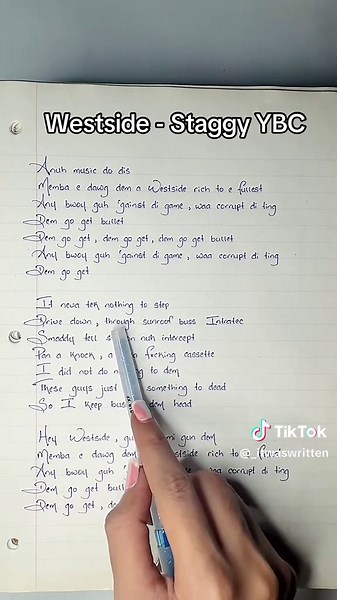 Westside - Staggy YBC
Anuh music do dis
Memba e dawg dem a Westside rich to e fullest
Any bwoy guh 'gainst di game, waa corrupt di ting
Dem go get bullet
Dem go get, dem go get, dem go get bullet
Any bwoy guh 'gainst di game, waa corrupt di ting
Dem go get
It neva tek nothing to step
Drive down, through sunroof buss Intratec
Smaddy tell nuh intercept
Pon a knock, a fucking cassette
I did not do to dem
These guys just something to dead
So I keep dem head
Hey Westside, mi gun dem
Memba e dawg dem rich to e
Any bwoy guh waa corrupt di ting
Dem go get
Dem go get,
TikTok